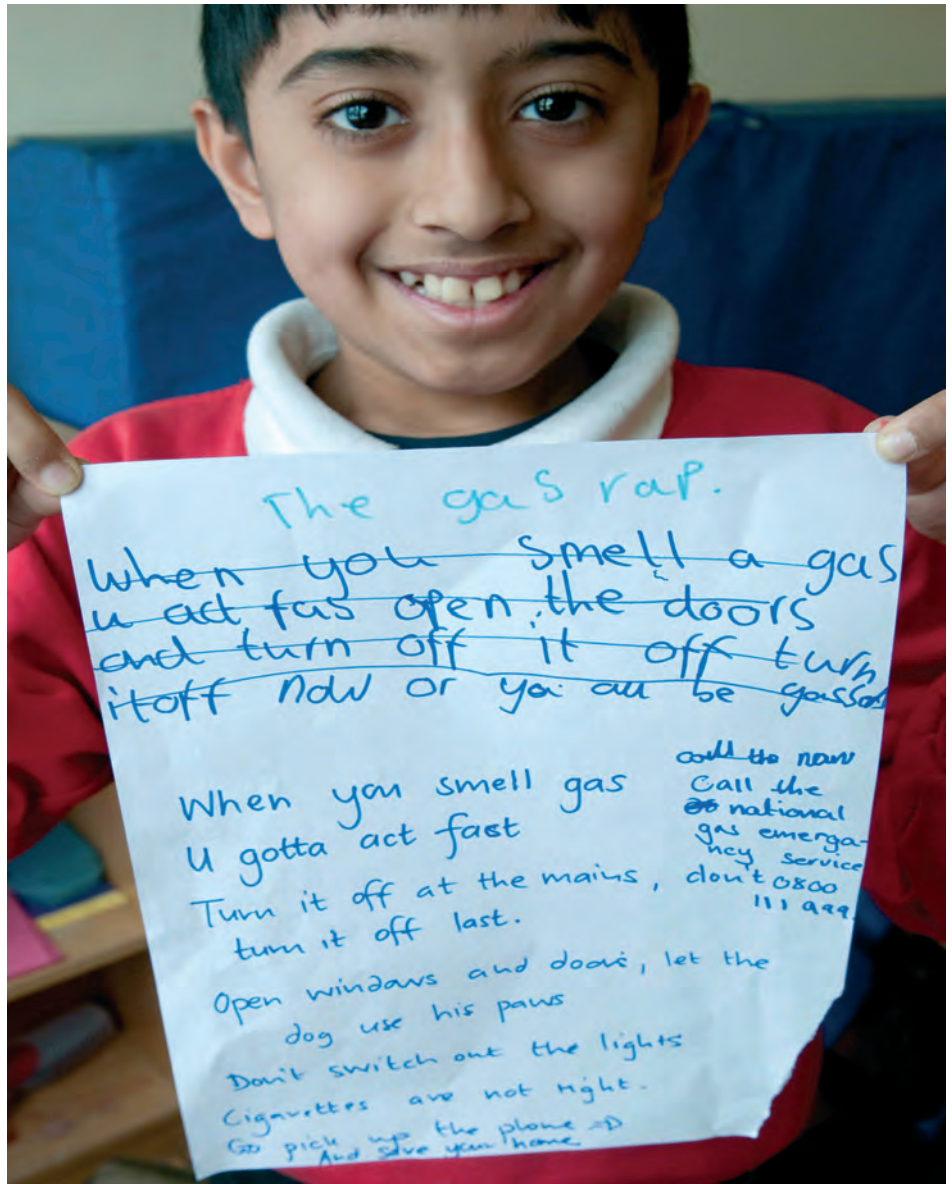 The gas rap.
When you smell a gas
u act fas open the doors
and turn off it off turn
it off now or you all be gassed
When you smell gas
U gotta act fast
Turn it off at the mains, don't
turn it off last.
Open windows and doors, let the
dog use his paws
Don't switch out the lights
Cigarettes are not right.
Go pick up the phone
And save your home
call the now
Call the
national
gas emerga-
ncy service
0800
111 999.